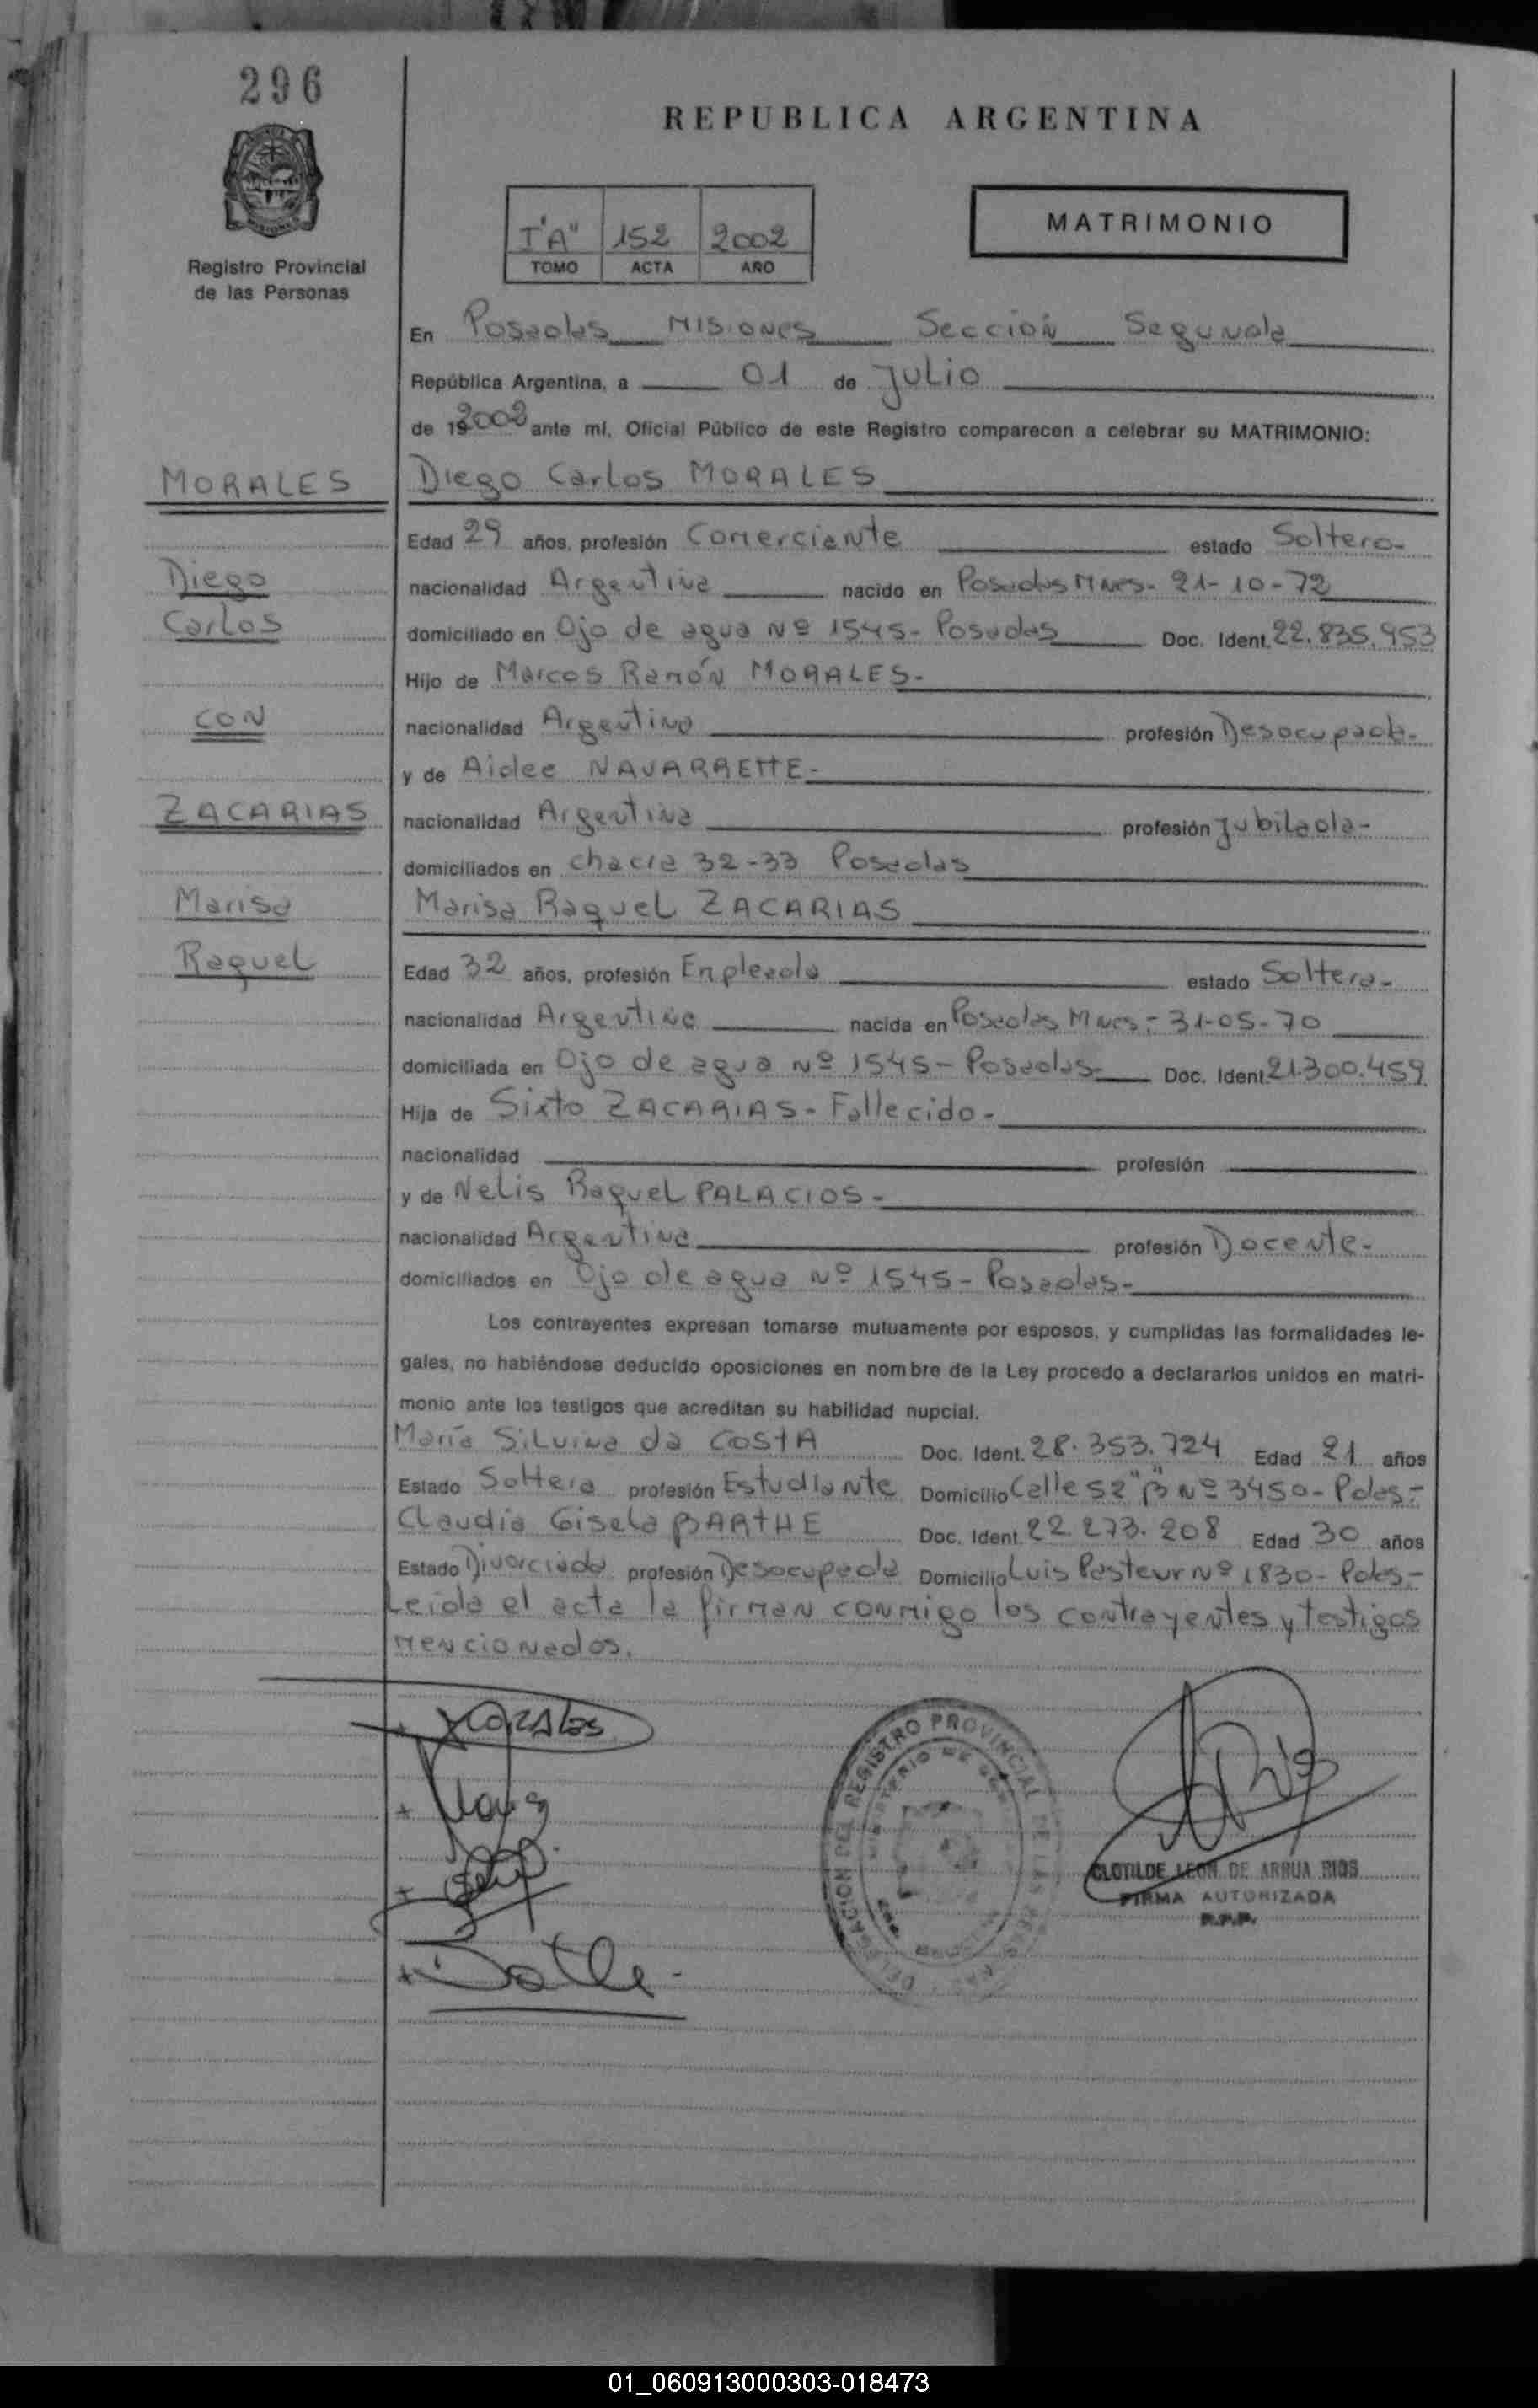 296
REPUBLICA ARGENTINA
Registro Provincial
de las Personas
I "A" 152 2002
TOMO ACTA AÑO
MATRIMONIO
En Posadas Misiones Sección Segunda
República Argentina, a 01 de Julio
de 2002 ante mí, Oficial Público de este Registro comparecen a celebrar su MATRIMONIO:
MORALES
Diego Carlos MORALES
Edad 29 años, profesión Comerciante estado Soltero-
Diego
nacionalidad Argentina nacido en Posadas Mnes- 21-10-72
Carlos
domiciliado en Ojo de agua Nº 1545- Posadas Doc. Ident. 22.835.953
Hijo de Marcos Ramón MORALES-
CON
nacionalidad Argentina profesión Desocupado-
y de Aidee NAVARRETTE-
ZACARIAS
nacionalidad Argentina profesión Jubilada-
domiciliados en Chacra 32-33 Posadas
Marisa
Marisa Raquel ZACARIAS
Raquel
Edad 32 años, profesión Empleada estado Soltera-
nacionalidad Argentina nacida en Posadas Mnes- 31-05-70
domiciliada en Ojo de agua Nº 1545- Posadas- Doc. Ident. 21.300.459
Hija de Sixto ZACARIAS- Fallecido-
nacionalidad profesión
y de Nelis Raquel PALACIOS-
nacionalidad Argentina profesión Docente-
domiciliados en Ojo de agua Nº 1545- Posadas-
Los contrayentes expresan tomarse mutuamente por esposos, y cumplidas las formalidades le-
gales, no habiéndose deducido oposiciones en nombre de la Ley procedo a declararlos unidos en matri-
monio ante los testigos que acreditan su habilidad nupcial.
María Silvina da COSTA Doc. Ident. 28.353.724 Edad 21 años
Estado Soltera profesión Estudiante Domicilio Calle 52 "B" Nº 3450- Pdas-
Claudia Gisela BARTHE Doc. Ident. 22.273.208 Edad 30 años
Estado Divorciada profesión Desocupada Domicilio Luis Pasteur Nº 1830- Pdas-
Leida el acta la firman conmigo los contrayentes y testigos
mencionados.
MORALES
DELEGACION DEL REGISTRO PROVINCIAL DE LAS PERSONAS
CLOTILDE LEON DE ARRUA RIOS
FIRMA AUTORIZADA
R.P.P.
01_060913000303-018473